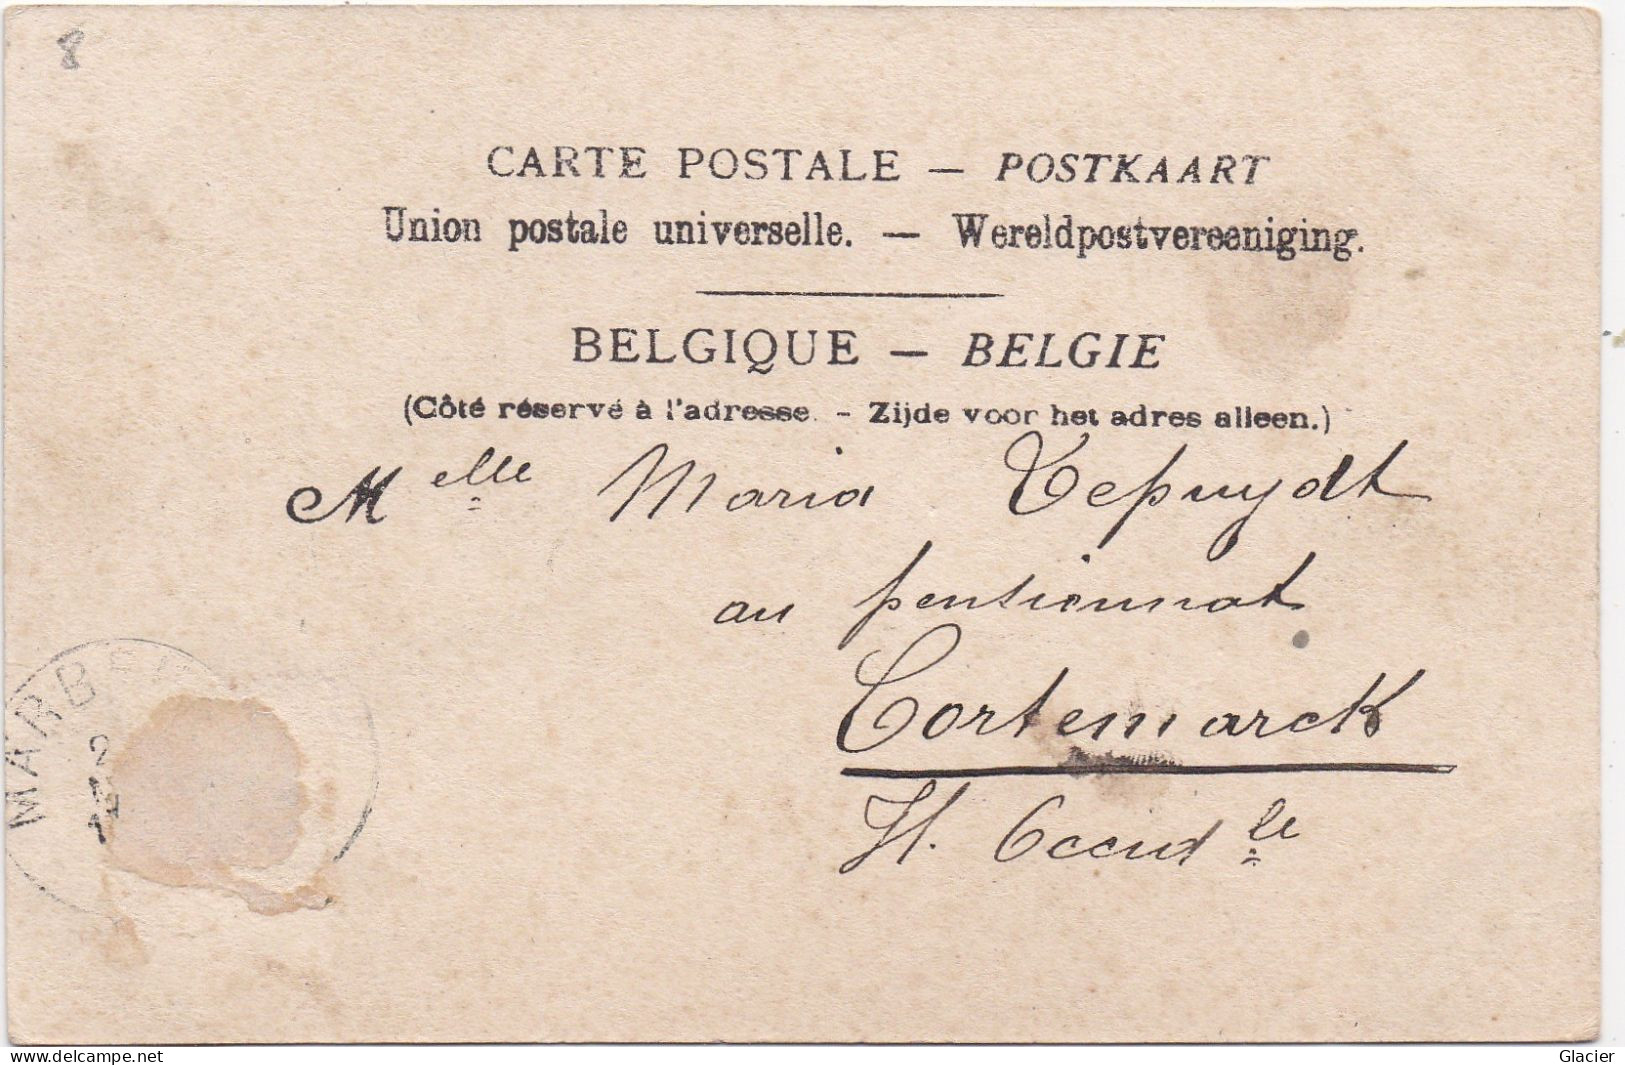 8
CARTE POSTALE — POSTKAART
Union postale universelle. — Wereldpostvereeniging.
BELGIQUE — BELGIE
(Côté réservé à l'adresse. - Zijde voor het adres alleen.)
Melle Maria Depuydt
au pensionnat
Cortemarck
Fl. Occid le
MARB
2
Glacier
www.delcampe.net